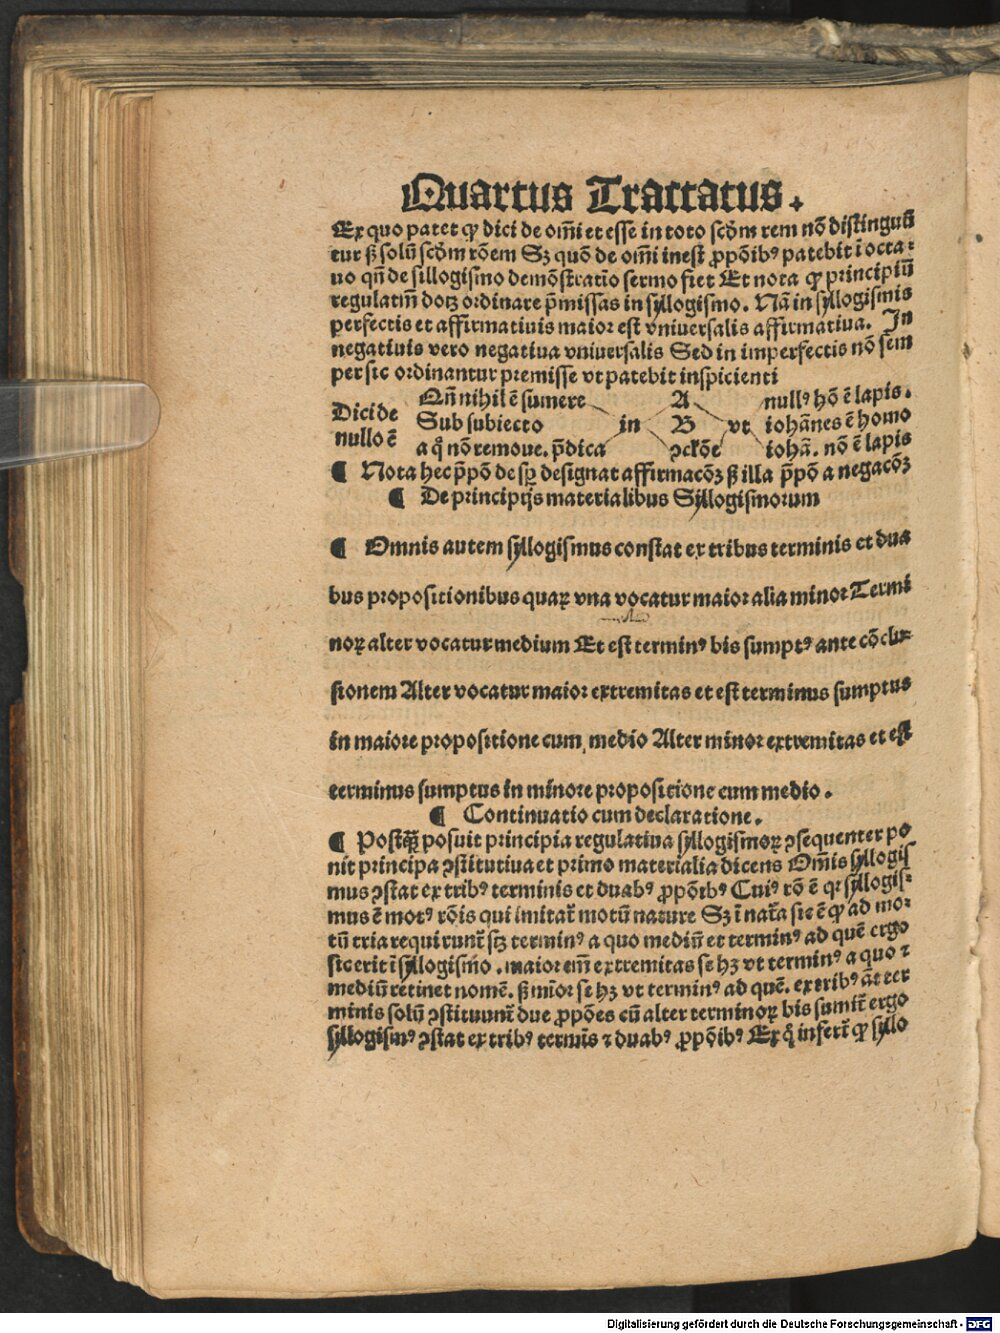 Quartus Tractatus.
Ex quo patet ꝙ dici de om̄i et esse in toto scd̄m rem nō distingun̄
tur sʒ solū scd̄m rōem Sʒ quō de om̄i inest ꝓpōibꝰ patebit ī octa⸗
uo qn̄ de sillogismo demōstratiō sermo fiet Et nota ꝙ principiū
regulatiū docʒ ordinare p̄missas in syllogismo. Nā in syllogismis
perfectis et affirmatiuis maior est vniuersalis affirmatiua. In
negatiuis vero negatiua vniuersalis Sed in imperfectis nō sem
per sic ordinantur premisse vt patebit inspicienti
Dici de
nullo ē
Qn̄ nihil ē sumere
Sub subiecto
a q̊ nō remoue. p̄dica
in
A
B
ꝯclōe
vt
nullꝰ hō ē lapis.
iohānes ē homo
iohā. nō ē lapis
¶ Nota hec p̄pō de sꝑ designat affirmacōʒ sʒ illa p̄pō a negacōʒ
¶ De principijs materialibus Syllogismorum
¶ Omnis autem syllogismus constat ex tribus terminis et dua
bus propositionibus quaꝝ vna vocatur maior alia minor Termi
noꝝ alter vocatur medium Et est terminꝰ bis sumptꝰ ante cōclu⸗
sionem Alter vocatur maior extremitas et est terminus sumptus
in maiore propositione cum medio Alter minor extremitas et est
terminus sumptus in minore propositione cum medio.
¶ Continuatio cum declaratione.
¶ Postqꝫ posuit principia regulatiua syllogismoꝝ ꝯsequenter po
nit principa ꝯstitutiua et primo materialia dicens Om̄is syllogis
mus ꝯstat ex tribꝰ terminis et duabꝰ ꝓpōibꝰ Cuiꝰ rō ē qr syllogis⸗
mus ē motꝰ rōis qui imitat̄ motū nature Sʒ ī nat̄a sic ē ꝙ ad mo⸗
tū tria requirunt̄ scʒ terminꝰ a quo mediū et terminꝰ ad quē ergo
sic erit ī syllogismo. maior em̄ extremitas se hʒ vt terminꝰ a quo ⁊
mediū retinet nomē. sʒ mīor se hʒ vt terminꝰ ad quē. ex tribꝰ āt ter
minis solū ꝯstituunt̄ due ꝓpōes cū alter terminoꝝ bis sumit̄ ergo
syllogismꝰ ꝯstat ex tribꝰ termīs ⁊ duabꝰ ꝓpōibꝰ Ex q̊ infert̄ ꝙ syllo
Digitalisierung gefördert durch die Deutsche Forschungsgemeinschaft - DFG